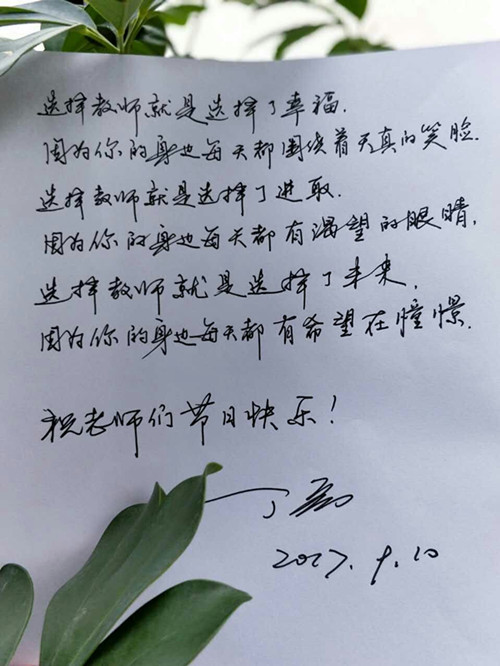 选择教师就是选择了幸福.
因为你的身边每天都围绕着天真的笑脸.
选择教师就是选择了进取.
因为你的身边每天都有渴望的眼睛,
选择教师就是选择了未来,
因为你的身边每天都有希望在憧憬.
祝老师们节日快乐!
丁
2017.9.10